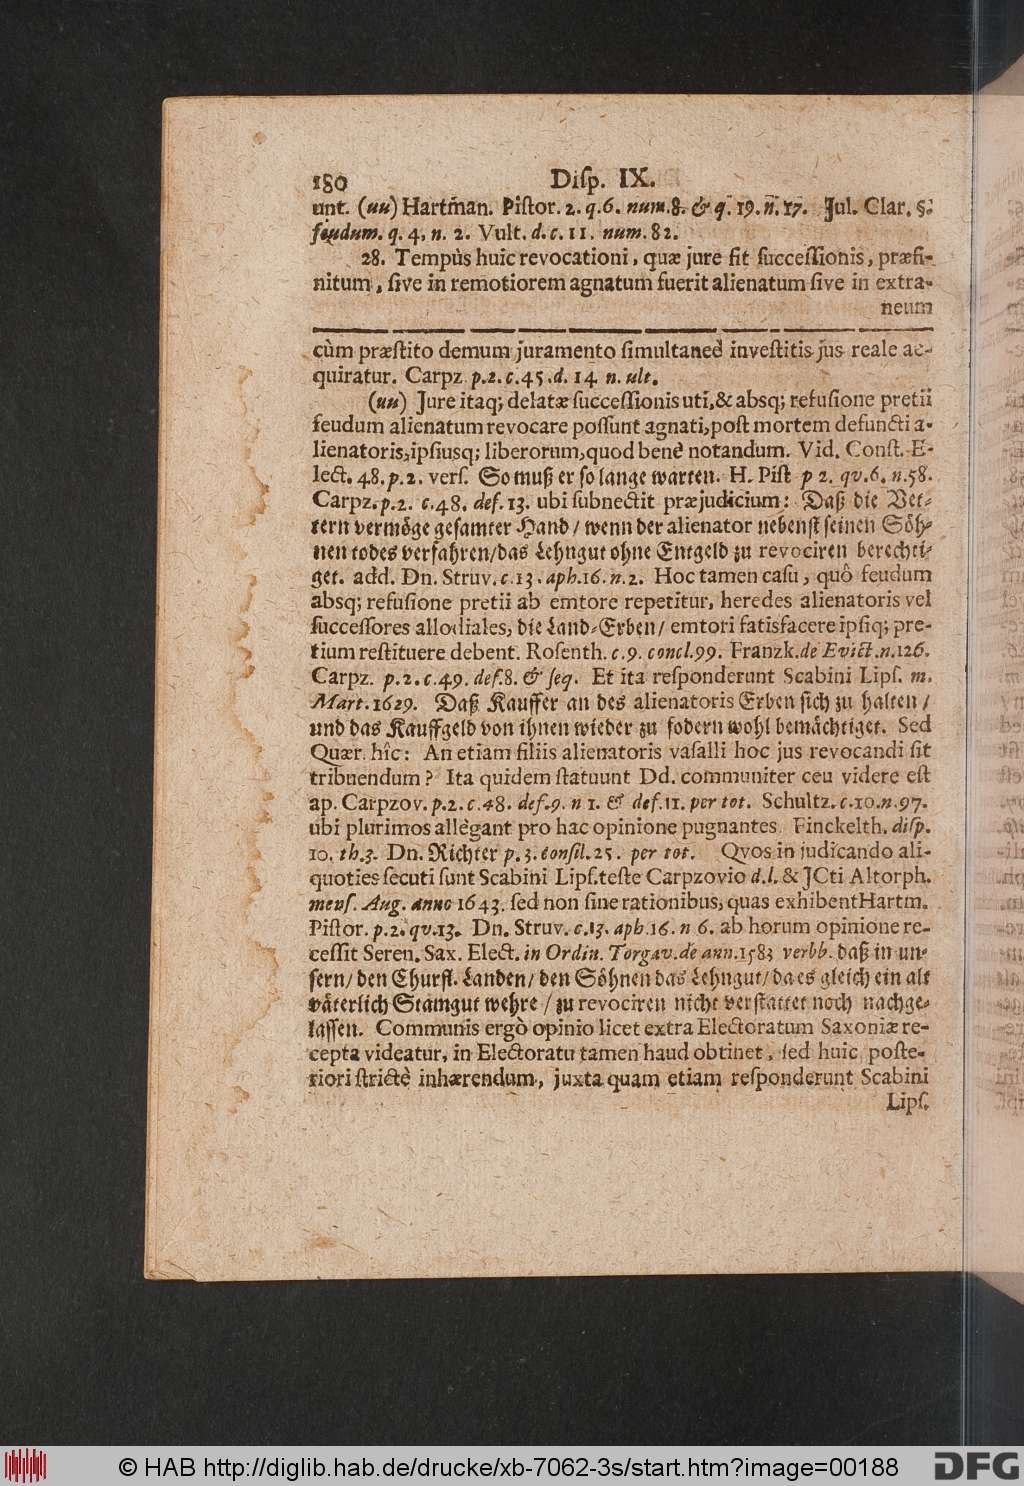 180 Disp. IX.
unt. (uu) Hartm̃an. Pistor. 2. q. 6. num. 8. & q. 19. n. 17. Jul. Clar. §.
feudum. q. 4. n. 2. Vult. d. c. 11. num. 82.
28. Tempùs huic revocationi, quæ jure fit successionis, præfi-
nitum, sive in remotiorem agnatum fuerit alienatum sive in extra-
neum
cùm præstito demum juramento simultaneè investitis jus reale ac-
quiratur. Carpz. p. 2. c. 45. d. 14. n. ult.
(uu) Jure itaq; delatæ successionis uti, & absq; refusione pretii
feudum alienatum revocare possunt agnati, post mortem defuncti a-
lienatoris, ipsiusq; liberorum, quod benè notandum. Vid. Const. E-
lect. 48. p. 2. vers. So muß er so lange warten. H. Pist p 2. qv. 6. n. 58.
Carpz. p. 2. c. 48. def. 13. ubi subnectit præjudicium: Daß die Vet-
tern vermöge gesamter Hand / wenn der alienator nebenst seinen Söh-
nen todes verfahren / das Lehngut ohne Entgeld zu revociren berechti-
get. add. Dn. Struv. c. 13. aph. 16. n. 2. Hoc tamen casu, quô feudum
absq; refusione pretii ab emtore repetitur, heredes alienatoris vel
successores allodiales, die Land-Erben / emtori satisfacere ipsiq; pre-
tium restituere debent. Rosenth. c. 9. concl. 99. Franzk. de Evict. n. 126.
Carpz. p. 2. c. 49. def. 8. & seq. Et ita responderunt Scabini Lips. m.
Mart. 1629. Daß Kauffer an des alienatoris Erben sich zu halten /
und das Kauffgeld von ihnen wieder zu fodern wohl bemächtiget. Sed
Quær. hîc: An etiam filiis alienatoris vasalli hoc jus revocandi sit
tribuendum? Ita quidem statuunt Dd. communiter ceu videre est
ap. Carpzov. p. 2. c. 48. def. 9. n 1. & def. 11. per tot. Schultz. c. 10. n. 97.
ubi plurimos allegant pro hac opinione pugnantes. Finckelth. disp.
10. th. 3. Dn. Richter p. 3. consil. 25. per tot. Qvos in judicando ali-
quoties secuti sunt Scabini Lips. teste Carpzovio d. l. & JCti Altorph.
mens. Aug. anno 1643. sed non sine rationibus, quas exhibent Hartm.
Pistor. p. 2. qv. 13. Dn. Struv. c. 13. aph. 16. n 6. ab horum opinione re-
cessit Seren. Sax. Elect. in Ordin. Torgav. de ann. 1583 verbb. daß in un-
sern / den Churfl. Landen / den Söhnen das Lehngut / da es gleich ein alt
väterlich Stamgut wehre / zu revociren nicht verstattet noch nachge-
lassen. Communis ergò opinio licet extra Electoratum Saxoniæ re-
cepta videatur, in Electoratu tamen haud obtinet, sed huic poste-
riori strictè inhærendum, juxta quam etiam responderunt Scabini
Lips.
© HAB http://diglib.hab.de/drucke/xb-7062-3s/start.htm?image=00188
DFG